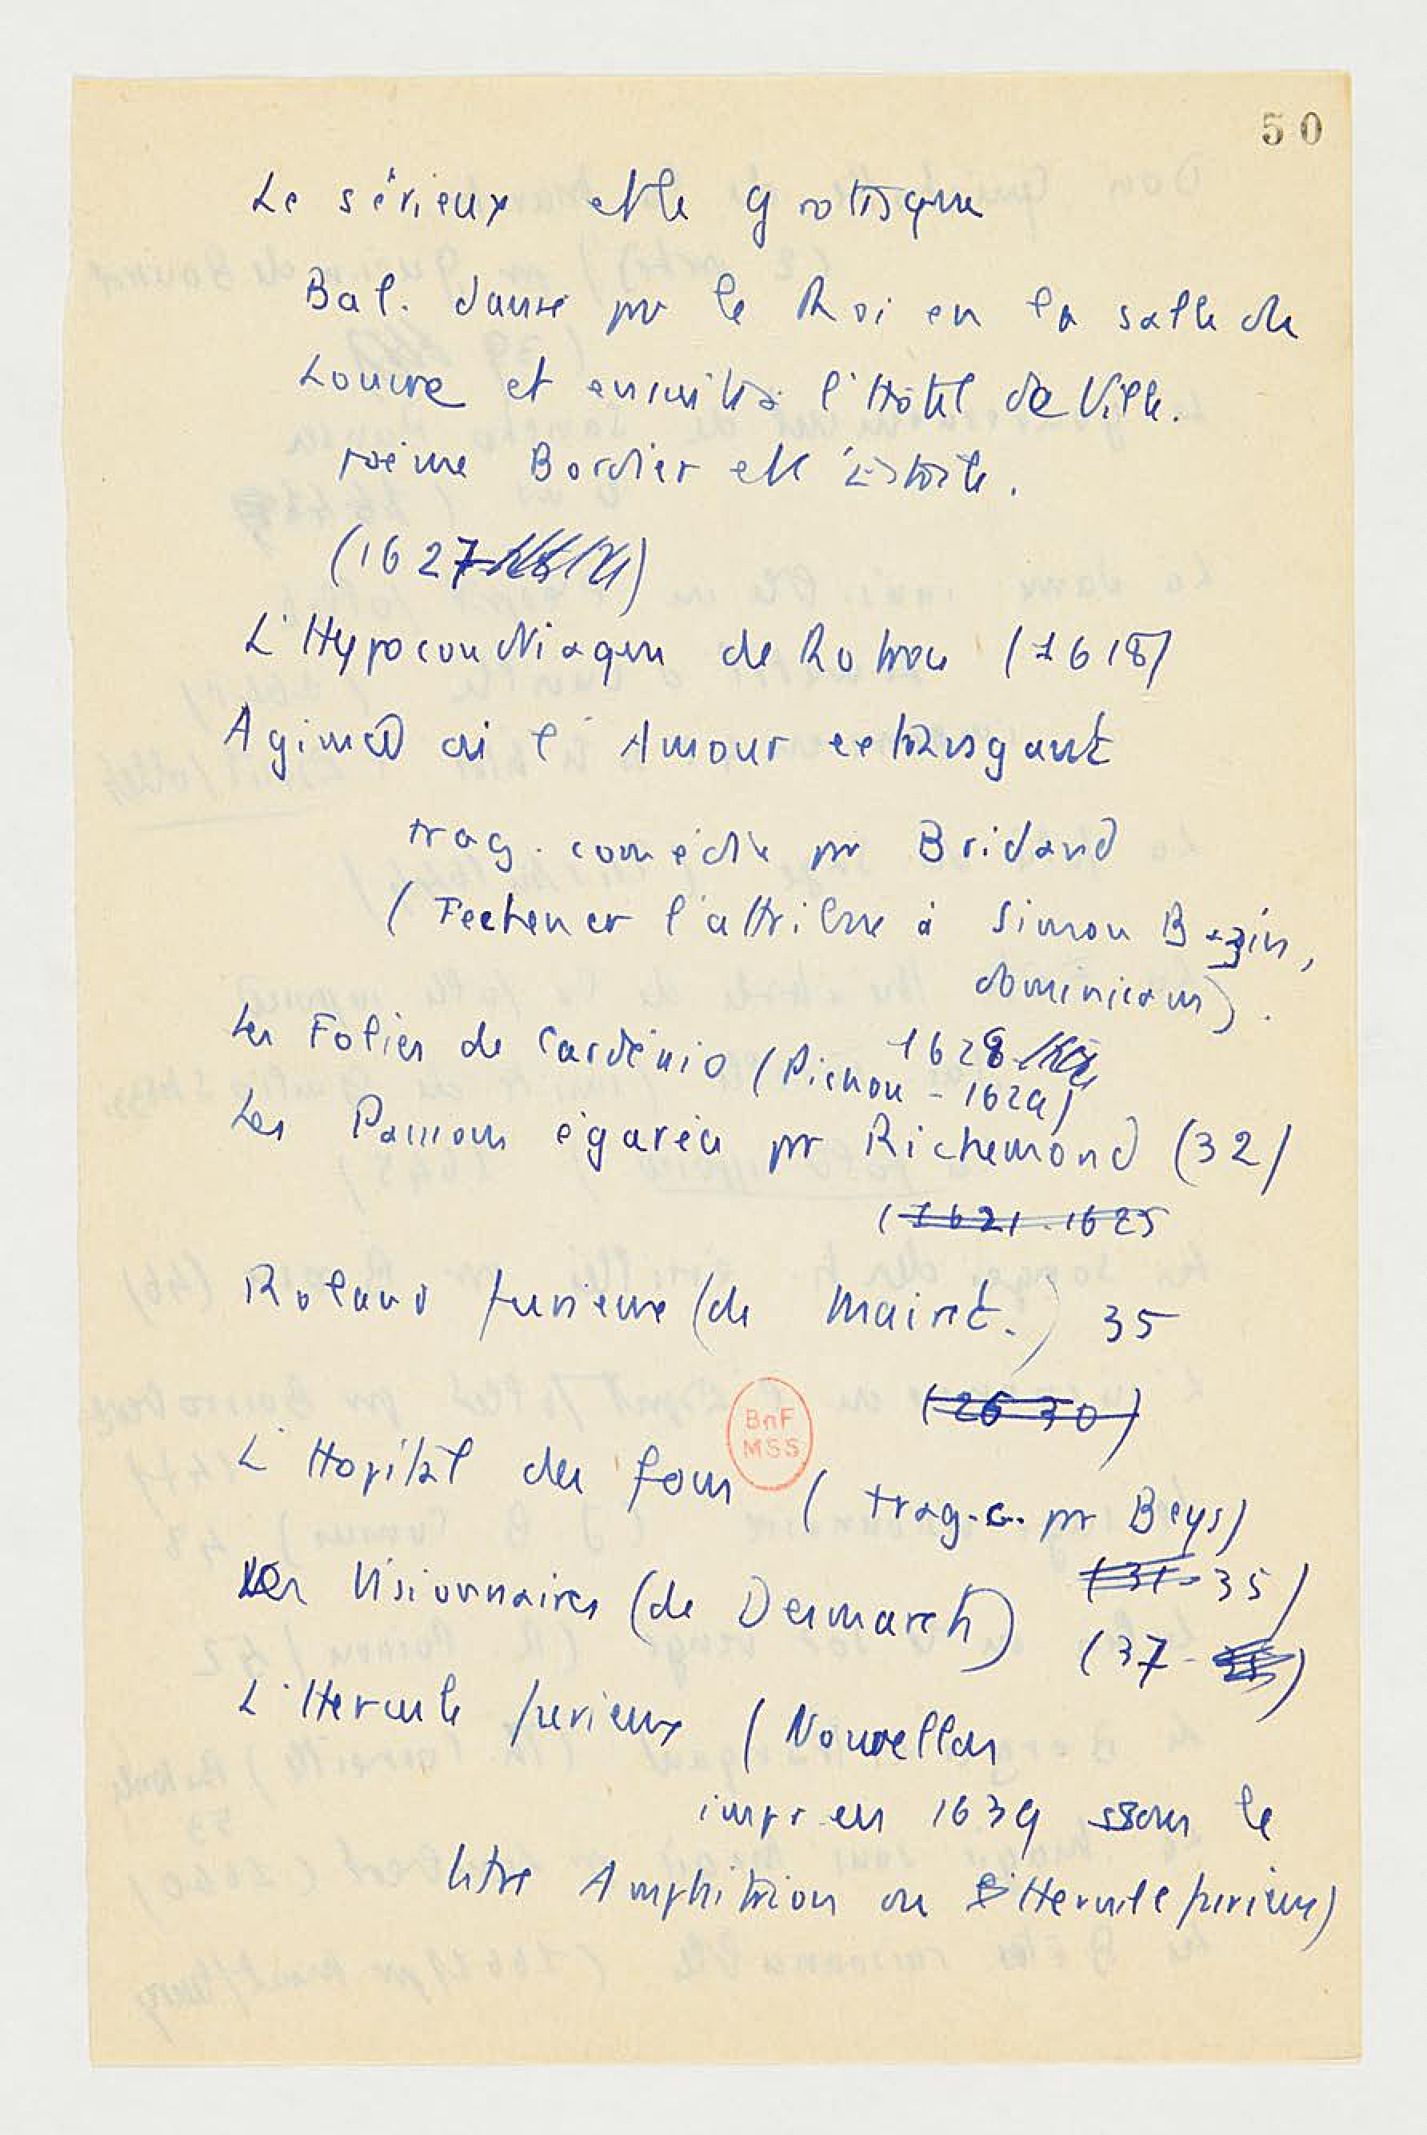 50
Le sérieux et le grotesque
Bal. dansé par le Roi en la salle du
Louvre et ensuite à l'Hôtel de Ville.
poème Bordier et l'Estoile.
(1627)
L'Hypocondriaque de Rotrou (1618)
Agimée ou l'Amour extravagant
trag. comédie par Bridard
( l'attribue à Simon Bazin,
dominicain).
Les Folies de Cardénio (Pichou - 1629)
1628
Les Passions égarées par Richemond (32)
(1621-1625
Roland furieux (de Mairet.) 35
(26 30)
L'Hopital des fous (trag.c. par Beys)
(31-35)
Les Visionnaires (de Desmarets)
(37- )
L'Hercule furieux (Nouvellon
impr en 1639 sous le
titre Amphitrion ou Hercule furieux)
BnF
MSS